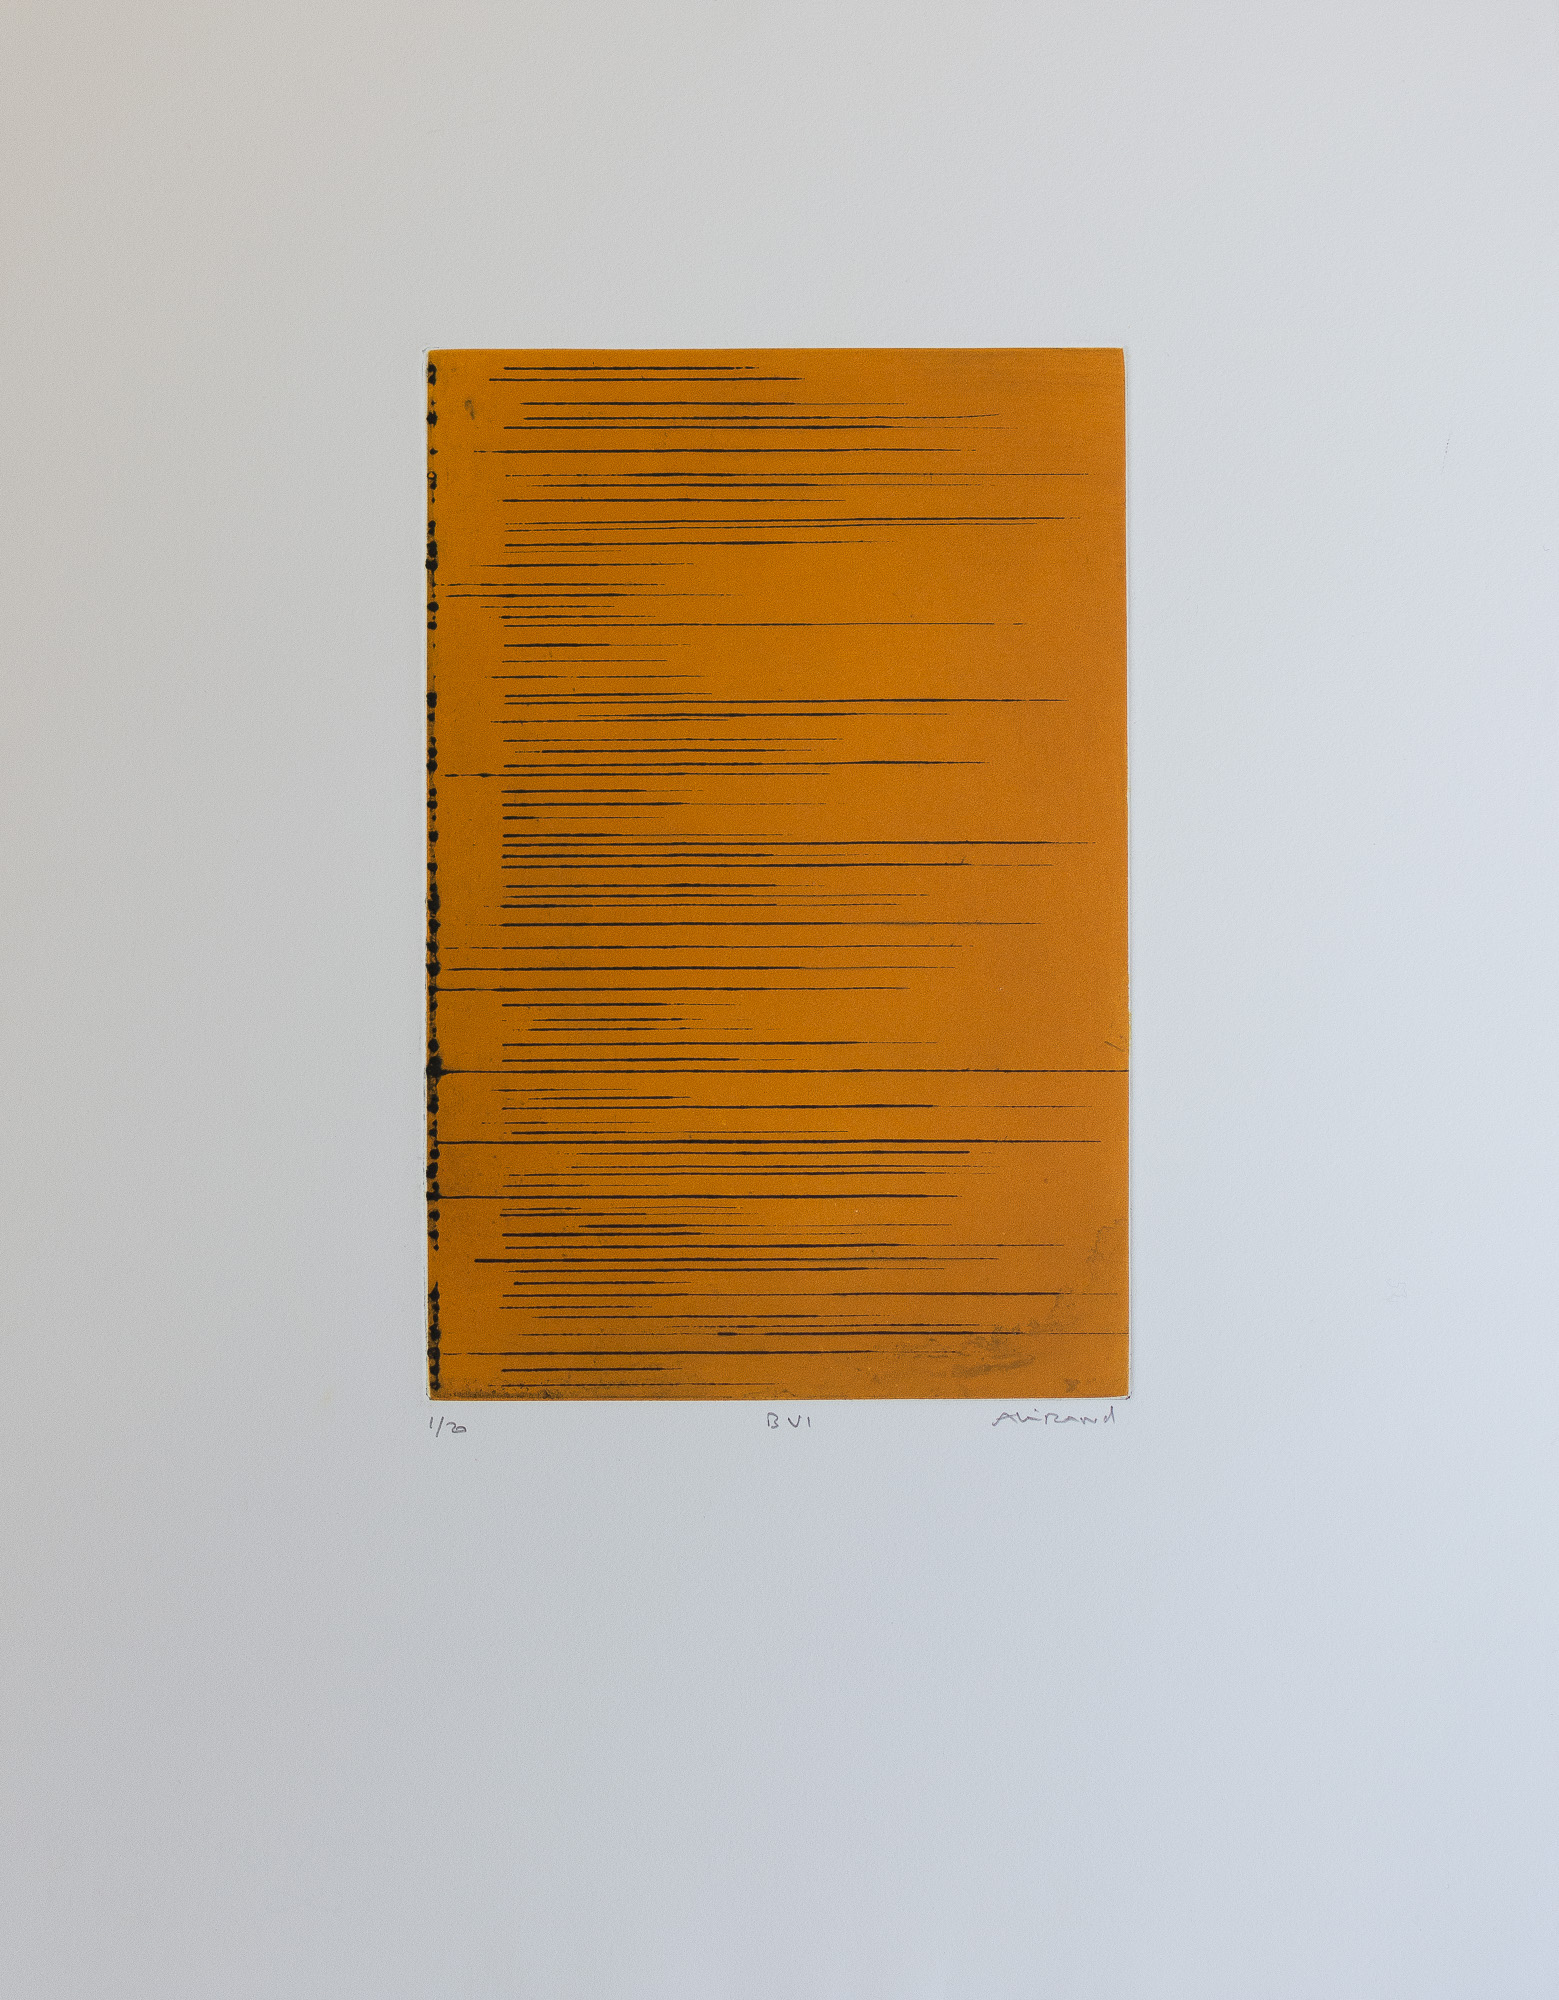 1/20 B VI Ali Rand